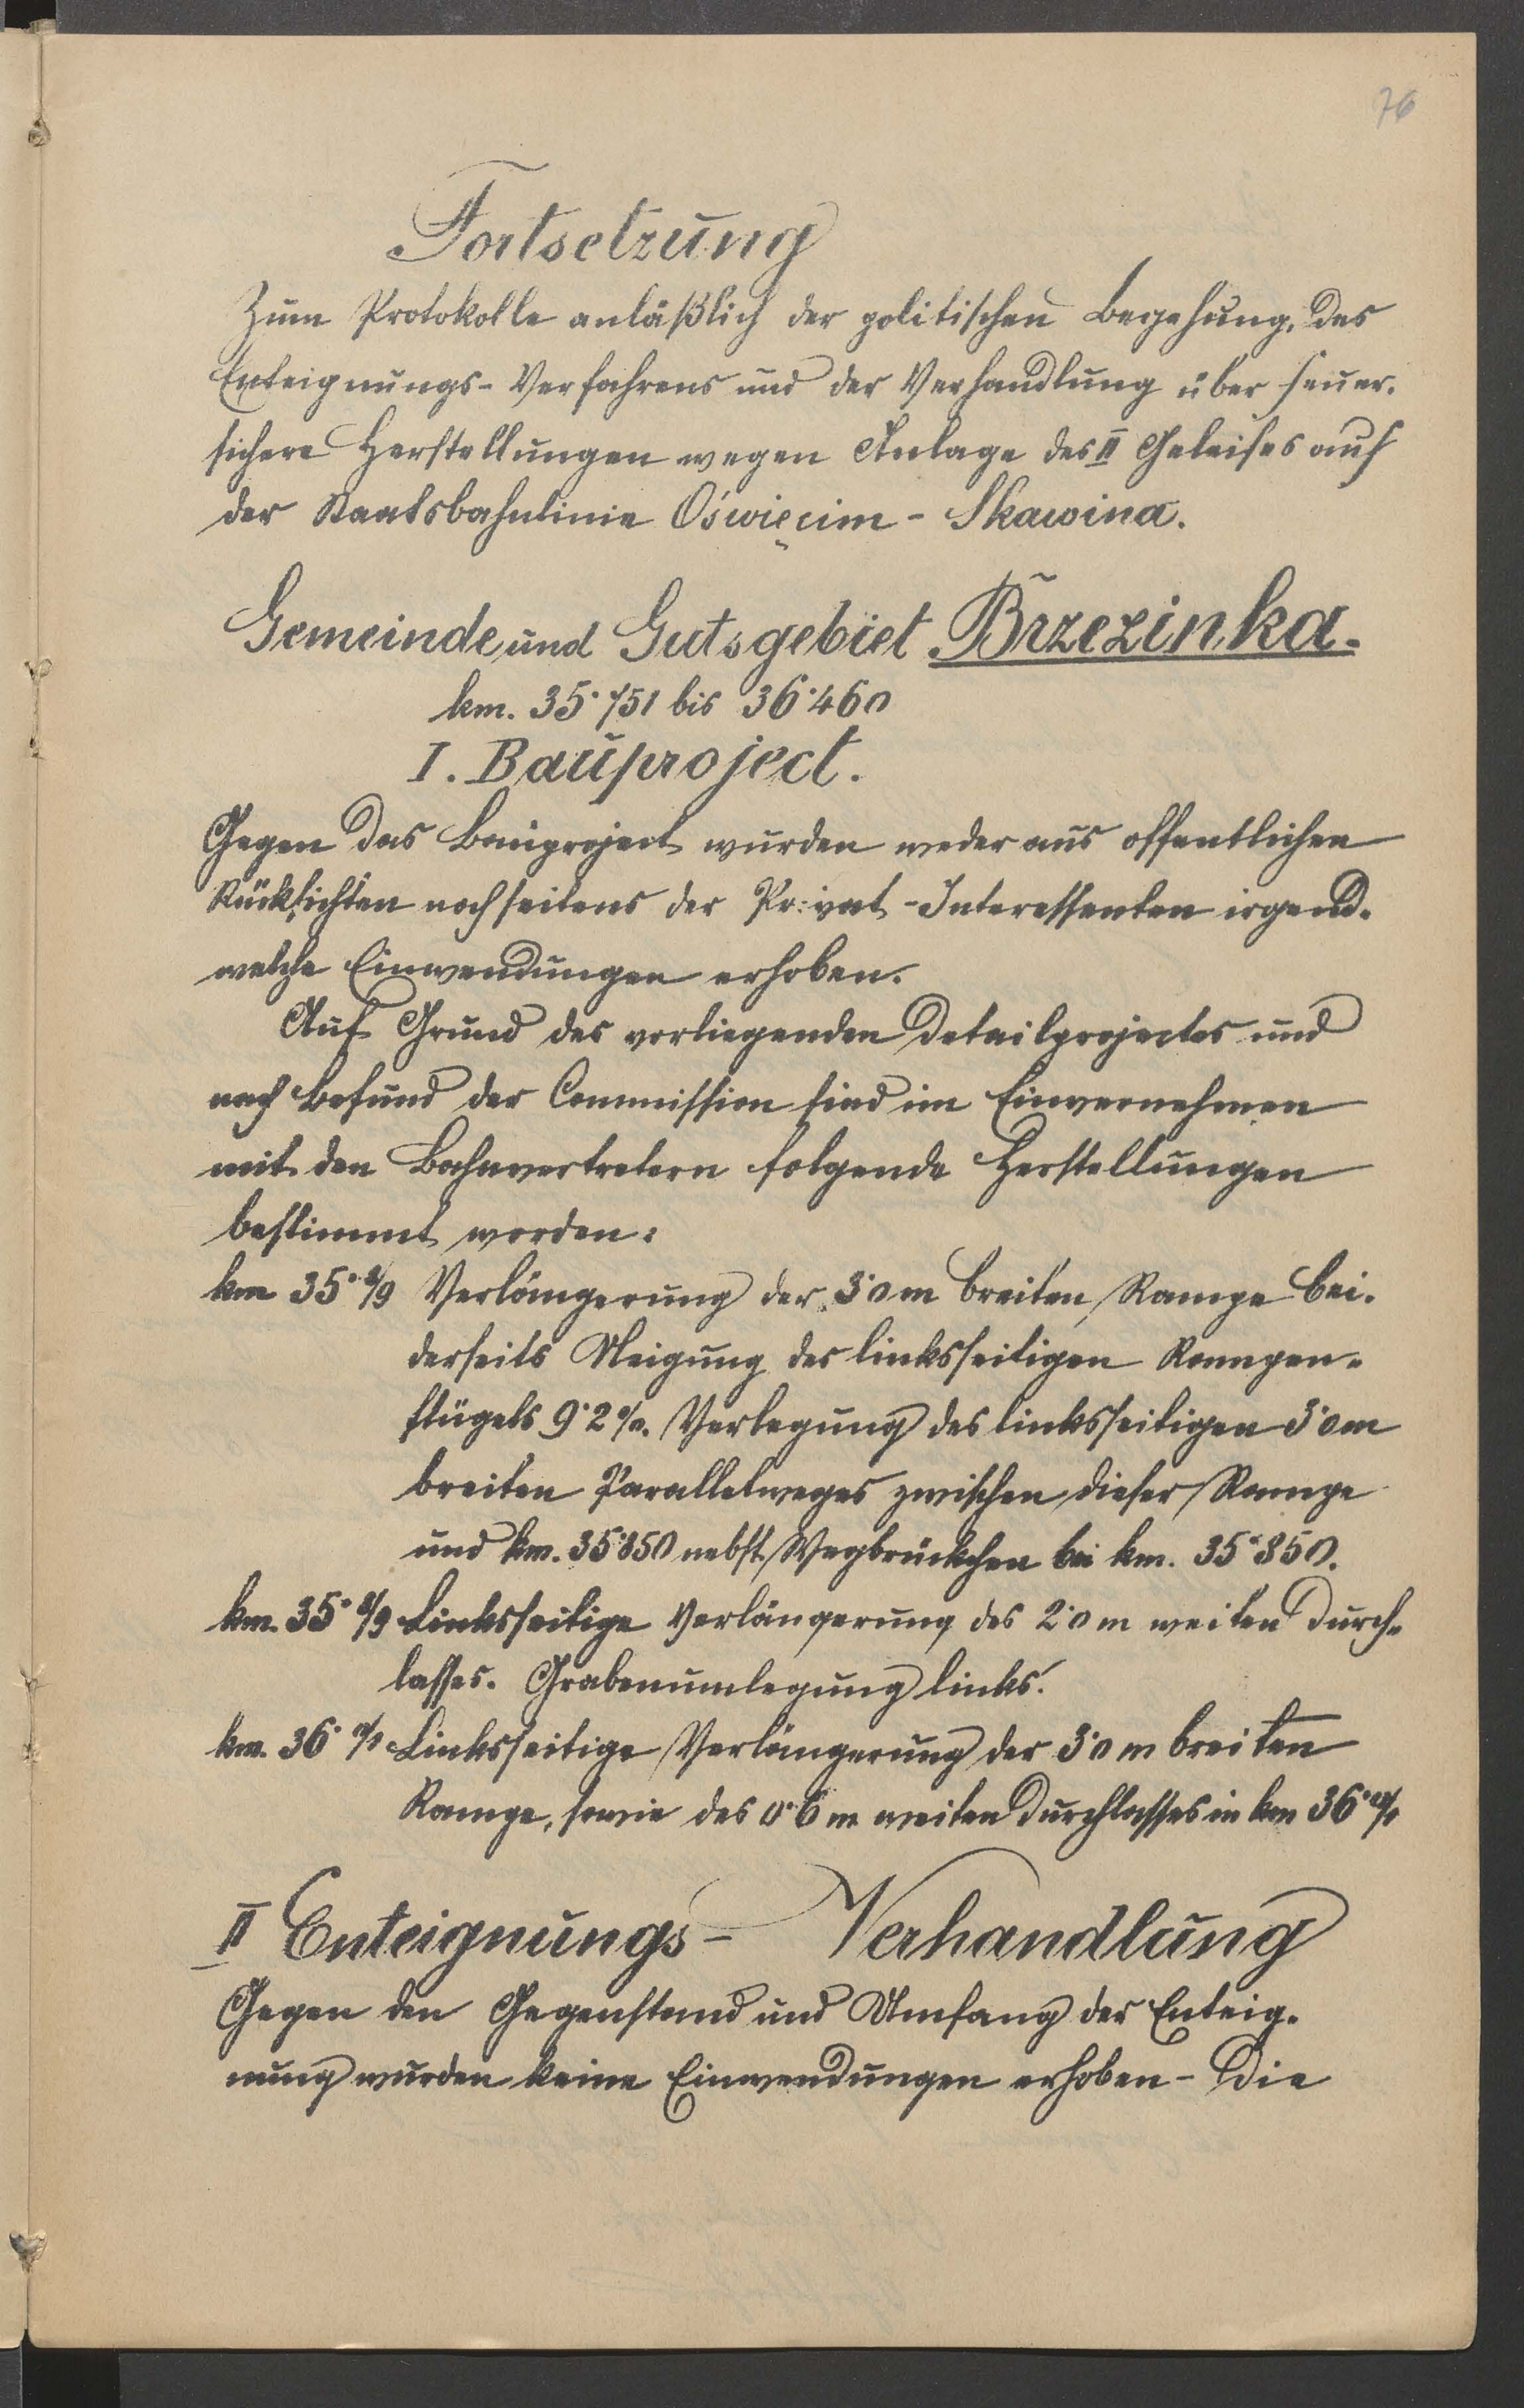 76
Fortsetzung
Zum Protokolle anläßlich der politischen Begehung, des
Enteignungs-Verfahrens und der Verhandlung über feuer-
sichere Herstellungen wegen Anlage des II Geleises auf
der Staatsbahnlinie Oświęcim - Skawina.
Gemeinde und Gutsgebiet Brzezinka.
km. 35·751 bis 36·460
I. Bauproject.
Gegen das Bauproject wurden weder aus öffentlichen
Rücksichten noch seitens der Privat-Interessenten irgend-
welche Einwendungen erhoben.
Auf Grund des vorliegenden Detailprojectes und
nach Befund der Commission sind im Einvernehmen
mit den Bahnvertretern folgende Herstellungen
bestimmt worden:
km 35·8/9 Verlängerung der 3·0 m breiten Rampe bei-
derseits Neigung des linksseitigen Rampen-
flügels 9·2 %. Verlegung des linksseitigen 3·0 m
breiten Parallelweges zwischen dieser Rampe
und km. 35·850 nebst Wegbrückchen bei km. 35·850.
km. 35·8/9 Linksseitige Verlängerung des 2·0 m weiten Durch-
lasses. Grabenumlegung links.
km. 36·0/1 Linksseitige Verlängerung der 3·0 m breiten
Rampe, sowie des 0·6 m weiten Durchlasses in km 36·0/1
II Enteignungs- Verhandlung
Gegen den Gegenstand und Umfang der Enteig-
nung wurden keine Einwendungen erhoben - Die